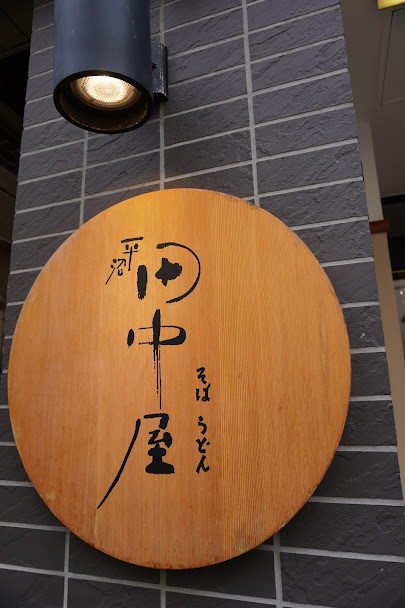 平沼
田中屋
そば うどん